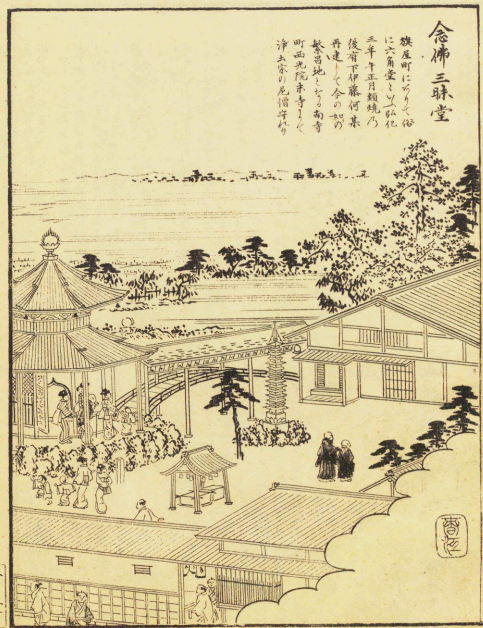 念佛三昧堂
旗屋町にありて俗
に六角堂といふ弘化
三年午正月類焼乃
後有下伊藤何某
再建して今の如の
繁昌地となる南寺
町西光院末寺にて
浄土宗の尼僧守れり